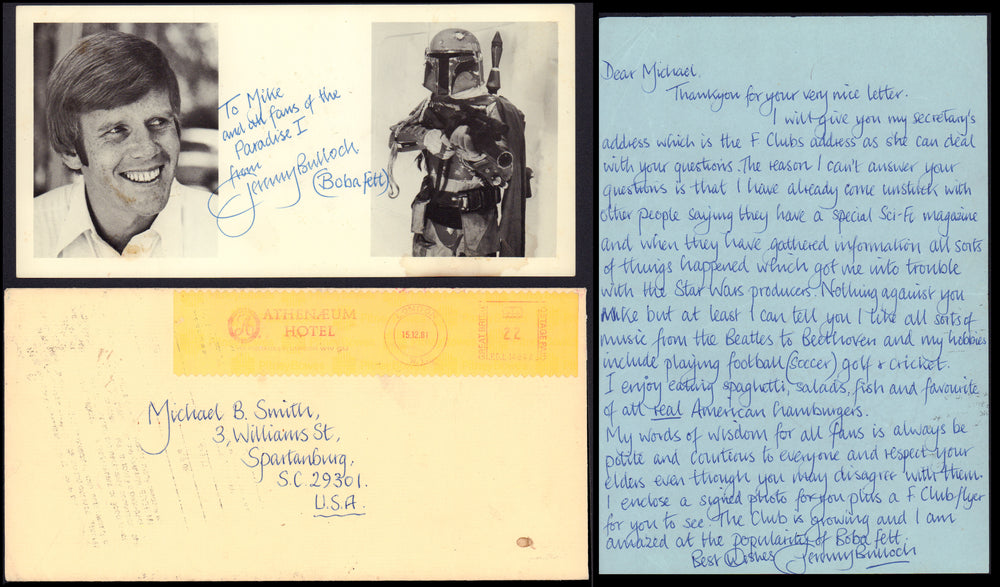 To Mike
and all fans of the
Paradise I
from
Jeremy Bulloch
(Boba fett)
ATHENÆUM
HOTEL
LONDON
15.12.81
W.1
GREAT BRITAIN
22
POSTAGE
Michael B. Smith,
3, Williams St,
Spartanburg,
S.C. 29301.
U.S.A.
Dear Michael.
Thankyou for your very nice letter.
I will give you my secretary's
address which is the F Clubs address as she can deal
with your questions. The reason I can't answer your
questions is that I have already come unstuck with
other people saying they have a special Sci-Fi magazine
and when they have gathered information all sorts
of things happened which got me into trouble
with the Star Wars producers. Nothing against you
Mike but at least I can tell you I like all sorts of
music from the Beatles to Beethoven and my hobbies
include playing football (soccer) golf & cricket.
I enjoy eating spaghetti, salads, fish and favourite
of all real American hamburgers.
My words of wisdom for all fans is always be
polite and courtious to everyone and respect your
elders even though you may disagree with them.
I enclose a signed photo for you plus a F Club flyer
for you to see. The Club is growing and I am
amazed at the popularity of Boba fett.
Best Wishes Jeremy Bulloch